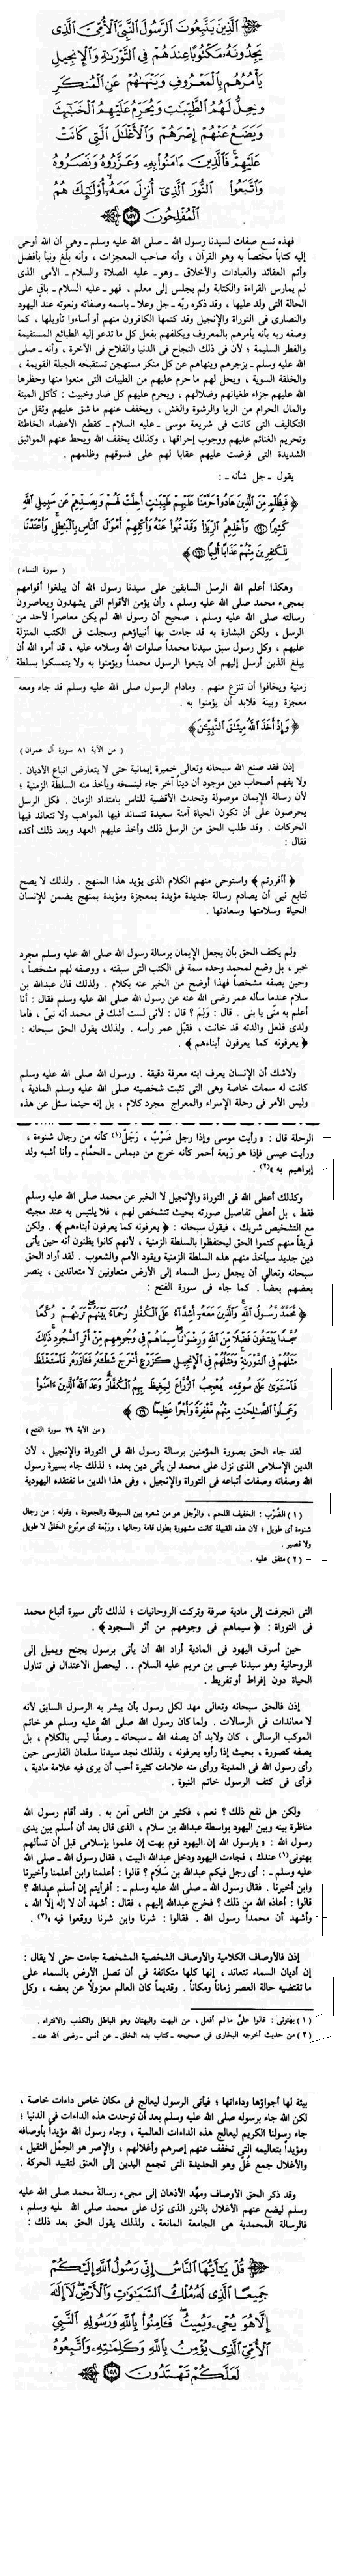 الَّذِينَ يَتَّبِعُونَ الرَّسُولَ النَّبِيَّ الْأُمِّيَّ الَّذِي
يَجِدُونَهُ مَكْتُوبًا عِندَهُمْ فِي التَّوْرَاةِ وَالْإِنجِيلِ
يَأْمُرُهُم بِالْمَعْرُوفِ وَيَنْهَاهُمْ عَنِ الْمُنكَرِ
وَيُحِلُّ لَهُمُ الطَّيِّبَاتِ وَيُحَرِّمُ عَلَيْهِمُ الْخَبَائِثَ
وَيَضَعُ عَنْهُمْ إِصْرَهُمْ وَالْأَغْلَالَ الَّتِي كَانَتْ
عَلَيْهِمْ فَالَّذِينَ ءَامَنُوا بِهِ وَعَزَّرُوهُ وَنَصَرُوهُ
وَاتَّبَعُوا النُّورَ الَّذِي أُنزِلَ مَعَهُ أُوْلَئِكَ هُمُ
الْمُفْلِحُونَ ١٥٧
فهذه تسع صفات لسيدنا رسول الله - صلى الله عليه وسلم - وهى أن الله أوحى
إليه كتاباً مختصاً به وهو القرآن ، وأنه صاحب المعجزات ، وأنه بلّغ ونبأ بأفضل
وأتم العقائد والعبادات والأخلاق - وهو - عليه الصلاة والسلام - الأمى الذى
لم يمارس القراءة والكتابة ولم يجلس إلى معلم ، فهو - عليه السلام - باقٍ على
الحالة التى ولد عليها ، وقد ذكره ربّه - جل وعلا - باسمه وصفاته ونعوته عند اليهود
والنصارى فى التوراة والإنجيل وقد كتمها الكافرون منهم أو أساءوا تأويلها ، كما
وصفه ربه بأنه يأمرهم بالمعروف ويكلفهم بفعل كل ما تدعو إليه الطبائع المستقيمة
والفطر السليمة ؛ لأن فى ذلك النجاح فى الدنيا والفلاح فى الآخرة ، وأنه - صلى
الله عليه وسلم - يزجرهم وينهاهم عن كل منكر مستهجن تستقبحه الجبلة القويمة ،
والخلقة السوية ، ويحل لهم ما حرم عليهم من الطيبات التى منعوا منها وحظرها
الله عليهم جزاء طغيانهم وضلالهم ، ويحرم عليهم كل ضار وخبيث : كأكل الميتة
والمال الحرام من الربا والرشوة والغش ، ويخفف عنهم ما شق عليهم وثقل من
التكاليف التى كانت فى شريعة موسى - عليه السلام - كقطع الأعضاء الخاطئة
وتحريم الغنائم عليهم ووجوب إحراقها ، وكذلك يخفف الله ويحط عنهم المواثيق
الشديدة التى فرضت عليهم عقابا لهم على فسوقهم وظلمهم .
يقول - جل شأنه - :
﴿ فَبِظُلْمٍ مِّنَ الَّذِينَ هَادُوا حَرَّمْنَا عَلَيْهِمْ طَيِّبَاتٍ أُحِلَّتْ لَهُمْ وَبِصَدِّهِمْ عَن سَبِيلِ اللَّهِ
كَثِيرًا ١٦٠ وَأَخْذِهِمُ الرِّبَوا وَقَدْ نُهُوا عَنْهُ وَأَكْلِهِمْ أَمْوَالَ النَّاسِ بِالْبَاطِلِ وَأَعْتَدْنَا
لِلْكَافِرِينَ مِنْهُمْ عَذَابًا أَلِيمًا ١٦١ ﴾
( سورة النساء )
وهكذا أعلم الله الرسل السابقين على سيدنا رسول الله أن يبلغوا أقوامهم
بمجىء محمد صلى الله عليه وسلم ، وأن يؤمن الأقوام التى يشهدون ويعاصرون
رسالته صلى الله عليه وسلم ، صحيح أن رسول الله لم يكن معاصراً لأحد من
الرسل ، ولكن البشارة به قد جاءت بها أنبياؤهم وسجلت فى الكتب المنزلة
عليهم ، وكل رسول سبق سيدنا محمداً صلوات الله وسلامه عليه ، قد أمره الله أن
يبلغ الذين أرسل إليهم أن يتبعوا الرسول محمداً ويؤمنوا به ولا يتمسكوا بسلطة
زمنية ويخافوا أن تنزع منهم . ومادام الرسول صلى الله عليه وسلم قد جاء ومعه
معجزة وبينة فلابد أن يؤمنوا به .
﴿ وَإِذْ أَخَذَ اللَّهُ مِيثَاقَ النَّبِيِّينَ ﴾
( من الآية ٨١ سورة آل عمران )
إذن فقد صنع الله سبحانه وتعالى خميرة إيمانية حتى لا يتعارض اتباع الأديان .
ولا يفهم أصحاب دين موجود أن ديناً آخر جاء لينسخه ويأخذ منه السلطة الزمنية ؛
لأن رسالة الإيمان موصولة وتحدث الأقضية للناس بامتداد الزمان . فكل الرسل
يحرصون على أن تكون الحياة آمنة سعيدة تتساند فيها المواهب ولا تتعاند فيها
الحركات . وقد طلب الحق من الرسل ذلك وأخذ عليهم العهد وبعد ذلك أكده
فقال :
﴿ أأقررتم ﴾ واستوحى منهم الكلام الذى يؤيد هذا المنهج . ولذلك لا يصح
لتابع نبى أن يصادم رسالة جديدة مؤيدة بمعجزة ومؤيدة بمنهج يضمن للإنسان
الحياة وسلامتها وسعادتها .
ولم يكتف الحق بأن يجعل الإيمان برسالة رسول الله صلى الله عليه وسلم مجرد
خبر ، بل وضع لمحمد وحده سمة فى الكتب التى سبقته ، ووصفه لهم مشخصاً ،
وحين يصفه مشخصاً فهذا أوضح من الخبر عنه بكلام . ولذلك قال عبدالله بن
سلام عندما سأله عمر رضى الله عنه عن رسول الله صلى الله عليه وسلم فقال : أنا
أعلم به منّى بابنى . قال : وَلِمَ ؟ قال : لأنى لست أشك فى محمد أنه نبىّ ، فأما
ولدى فلعل والدته قد خانت ، فقبّل عمر رأسه . ولذلك يقول الحق سبحانه :
﴿ يعرفونه كما يعرفون أبناءهم ﴾ .
ولاشك أن الإنسان يعرف ابنه معرفة دقيقة . ورسول الله صلى الله عليه وسلم
كانت له سمات خاصة وهى التى تثبت شخصيته صلى الله عليه وسلم المادية ،
وليس الأمر فى رحلة الإسراء والمعراج مجرد كلام ، بل إنه حينما سئل عن هذه
الرحلة قال : « رأيت موسى وإذا رجل ضَرْبٌ ، رَجَلٌ(١) كأنه من رجال شنوءة ،
ورأيت عيسى فإذا هو رَبعة أحمر كأنه خرج من ديماس - الحمّام - وأنا أشبه ولد
إبراهيم به »(٢) .
وكذلك أعطى الله فى التوراة والإنجيل لا الخبر عن محمد صلى الله عليه وسلم
فقط ، بل أعطى تفاصيل صورته بحيث تتشخص لهم ، فلا يلتبس به عند مجيئه
مع التشخيص شريك ، فيقول سبحانه : ﴿ يعرفونه كما يعرفون أبناءهم ﴾ . ولكن
فريقاً منهم كتموا الحق ليحتفظوا بالسلطة الزمنية ، لأنهم كانوا يظنون أنه حين يأتى
دين جديد سيأخذ منهم هذه السلطة الزمنية ويقود الأمم والشعوب . لقد أراد الحق
سبحانه وتعالى أن يجعل رسل السماء إلى الأرض متعاونين لا متعاندين ، ينصر
بعضهم بعضاً . كما جاء فى سورة الفتح :
﴿ مُّحَمَّدٌ رَّسُولُ اللَّهِ وَالَّذِينَ مَعَهُ أَشِدَّاءُ عَلَى الْكُفَّارِ رُحَمَاءُ بَيْنَهُمْ تَرَاهُمْ رُكَّعًا
سُجَّدًا يَبْتَغُونَ فَضْلًا مِّنَ اللَّهِ وَرِضْوَانًا سِيمَاهُمْ فِي وُجُوهِهِم مِّنْ أَثَرِ السُّجُودِ ذَلِكَ
مَثَلُهُمْ فِي التَّوْرَاةِ وَمَثَلُهُمْ فِي الْإِنجِيلِ كَزَرْعٍ أَخْرَجَ شَطْأَهُ فَآزَرَهُ فَاسْتَغْلَظَ
فَاسْتَوَى عَلَى سُوقِهِ يُعْجِبُ الزُّرَّاعَ لِيَغِيظَ بِهِمُ الْكُفَّارَ وَعَدَ اللَّهُ الَّذِينَ ءَامَنُوا
وَعَمِلُوا الصَّالِحَاتِ مِنْهُم مَّغْفِرَةً وَأَجْرًا عَظِيمًا ٢٩ ﴾
( من الآية ٢٩ سورة الفتح )
لقد جاء الحق بصورة المؤمنين برسالة رسول الله فى التوراة والإنجيل ، لأن
الدين الإسلامى الذى نزل على محمد لن يأتى دين بعده ؛ لذلك جاء بسيرة رسول
الله وصفاته وصفات أتباعه فى التوراة والإنجيل ، وفى هذا الدين ما تفتقده اليهودية
( ١ ) الضَّرْب : الخفيف اللحم ، والرَّجل هو من شعره بين السبوطة والجعودة ، وقوله : من رجال
شنوءة أى طويل ؛ لأن هذه القبيلة كانت مشهورة بطول قامة رجالها ، ورَبْعة أى مربُوع الخَلق لا طويل
ولا قصير .
( ٢ ) متفق عليه .
التى انجرفت إلى مادية صرفة وتركت الروحانيات ؛ لذلك تأتى سيرة أتباع محمد
فى التوراة : ﴿ سيماهم فى وجوههم من أثر السجود ﴾ .
حين أسرف اليهود فى المادية أراد الله أن يأتى برسول يجنح ويميل إلى
الروحانية وهو سيدنا عيسى بن مريم عليه السلام . . ليحصل الاعتدال فى تناول
الحياة دون إفراط أو تفريط .
إذن فالحق سبحانه وتعالى مهد لكل رسول بأن يبشر به الرسول السابق لأنه
لا معاندات فى الرسالات . ولما كان رسول الله صلى الله عليه وسلم هو خاتم
الموكب الرسالى ، كان ولابد أن يصفه الله - سبحانه - وصفًا ليس بالكلام ، بل
يصفه كصورة ، بحيث إذا رأوه يعرفونه ، ولذلك نجد سيدنا سلمان الفارسى حين
رأى رسول الله فى المدينة ورأى منه علامات كثيرة أحب أن يرى فيه علامة مادية ،
فرأى فى كتف الرسول خاتم النبوة .
ولكن هل نفع ذلك ؟ نعم ، فكثير من الناس آمن به . وقد أقام رسول الله
مناظرة بينه وبين اليهود بواسطة عبدالله بن سلام ، الذى قال بعد أن أسلم بين يدى
رسول الله : « يارسول الله إن اليهود قوم بهت إن علموا بإسلامى قبل أن تسألهم
بهتونى(١) عندك ، فجاءت اليهود ودخل عبدالله البيت ، فقال رسول الله - صلى الله
عليه وسلم - : أى رجل فيكم عبدالله بن سلَام ؟ قالوا : أعلمنا وابن أعلمنا وأخيرنا
وابن أخيرنا . فقال رسول الله - صلى الله عليه وسلم - : أفرأيتم إن أسلم عبدالله ؟
قالوا : أعاذه الله من ذلك ؟ فخرج عبدالله إليهم ، فقال : أشهد أن لا إله إلّا الله ،
وأشهد أن محمداً رسول الله . فقالوا : شرنا وابن شرنا ووقعوا فيه »(٢) .
إذن فالأوصاف الكلامية والأوصاف الشخصية المشخصة جاءت حتى لا يقال :
إن أديان السماء تتعاند ، إنها كلها متكاتفة فى أن تصل الأرض بالسماء على
ما تقتضيه حالة العصر زماناً ومكاناً . وقديماً كان العالم معزولًا عن بعضه ، وكل
( ١ ) بهتونى : قالوا علىّ ما لم أفعل ، من البهت والبهتان وهو الباطل والكذب والافتراء .
( ٢ ) من حديث أخرجه البخارى فى صحيحه - كتاب بدء الخلق - عن أنس - رضى الله عنه -
بيئة لها أجواؤها وداءاتها ؛ فيأتى الرسول ليعالج فى مكان خاص داءات خاصة ،
لكن الله جاء برسوله صلى الله عليه وسلم بعد أن توحدت هذه الداءات فى الدنيا ؛
جاء رسولنا الكريم ليعالج هذه الداءات العالمية ، وجاء رسول الله مؤيداً بأوصافه
ومؤيداً بتعاليمه التى تخفف عنهم إصرهم وأغلالهم ، والإصر هو الحِمْل الثقيل ،
والأغلال جمع غُلّ وهو الحديدة التى تجمع اليدين إلى العنق لتقييد الحركة .
وقد ذكر الحق الأوصاف ومهّد الأذهان إلى مجىء رسالة محمد صلى الله عليه
وسلم ليضع عنهم الأغلال بالنور الذى نزل على محمد صلى الله عليه وسلم ،
فالرسالة المحمدية هى الجامعة المانعة ، ولذلك يقول الحق بعد ذلك :
قُلْ يَا أَيُّهَا النَّاسُ إِنِّي رَسُولُ اللَّهِ إِلَيْكُمْ
جَمِيعًا الَّذِي لَهُ مُلْكُ السَّمَاوَاتِ وَالْأَرْضِ لَا إِلَهَ
إِلَّا هُوَ يُحْيِي وَيُمِيتُ فَآمِنُوا بِاللَّهِ وَرَسُولِهِ النَّبِيِّ
الْأُمِّيِّ الَّذِي يُؤْمِنُ بِاللَّهِ وَكَلِمَاتِهِ وَاتَّبِعُوهُ
لَعَلَّكُمْ تَهْتَدُونَ ١٥٨